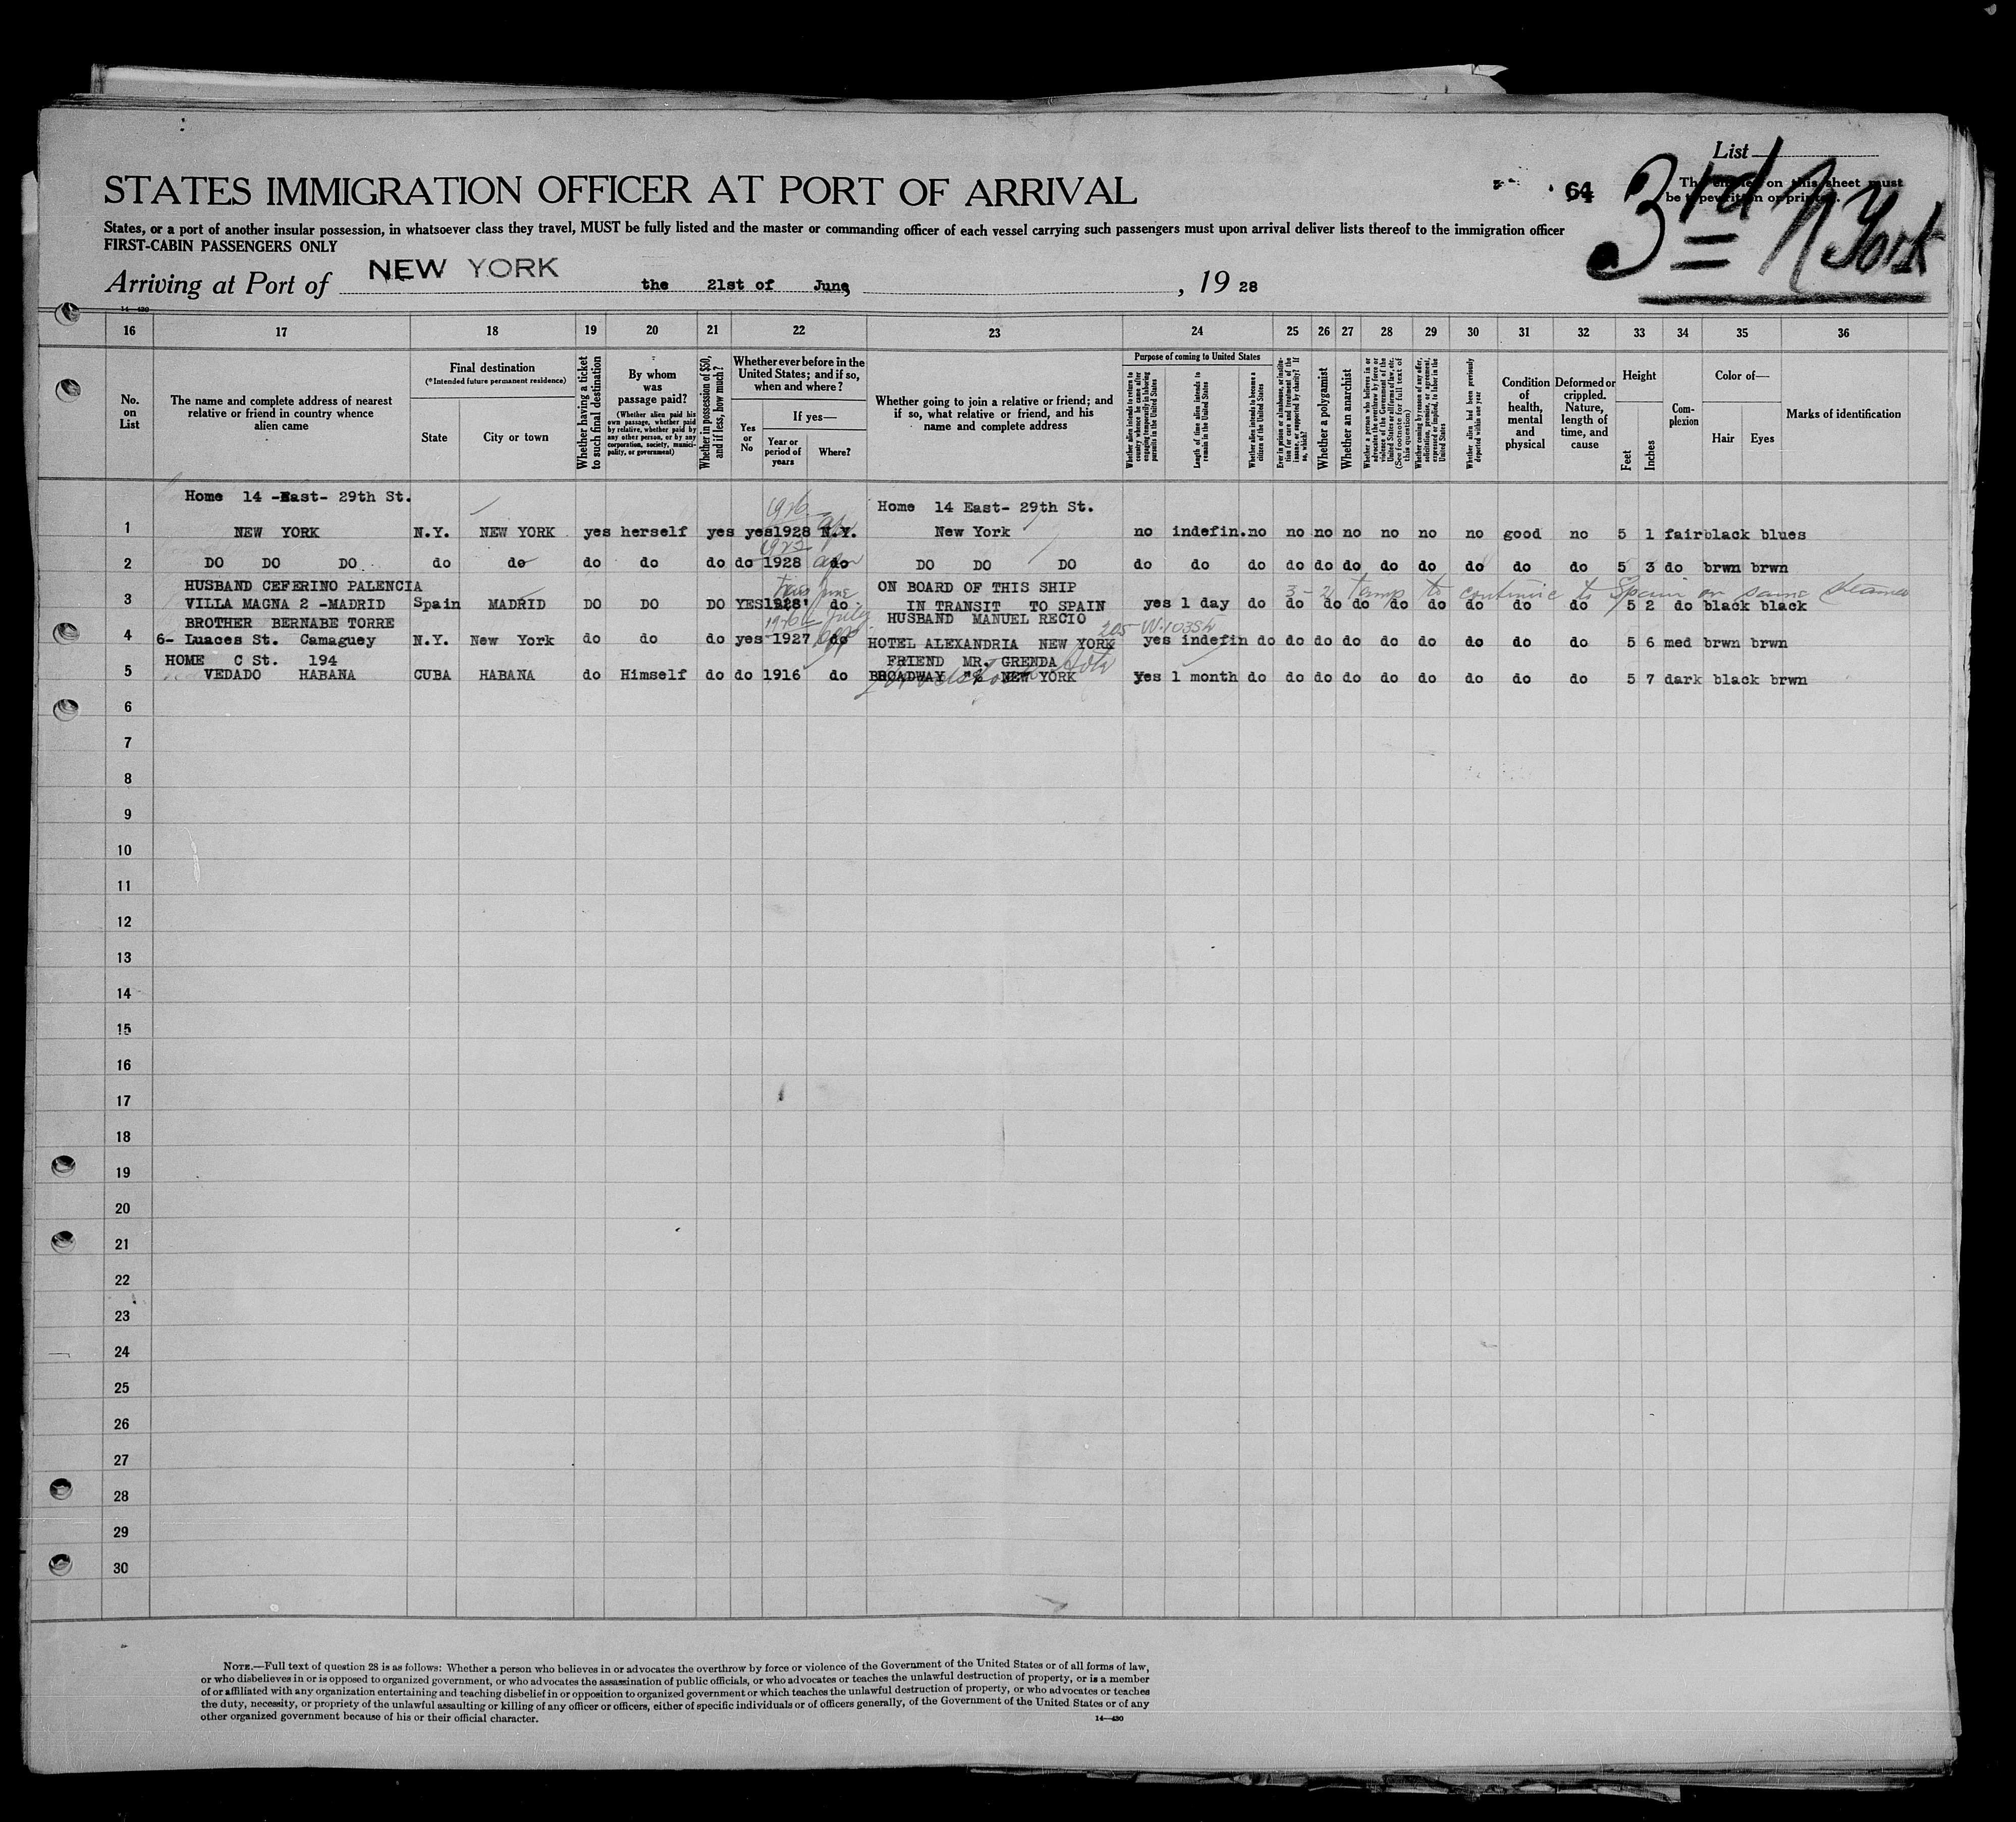 List
STATES IMMIGRATION OFFICER AT PORT OF ARRIVAL
64
The entries on this sheet must
be typewritten or printed.
3rd N York
States, or a port of another insular possession, in whatsoever class they travel, MUST be fully listed and the master or commanding officer of each vessel carrying such passengers must upon arrival deliver lists thereof to the immigration officer
FIRST-CABIN PASSENGERS ONLY
Arriving at Port of NEW YORK the 21st of June, 19 28
14—430
16 17 18 19 20 21 22 23 24 25 26 27 28 29 30 31 32 33 34 35 36
No. on List
The name and complete address of nearest relative or friend in country whence alien came
Final destination
(*Intended future permanent residence)
State
City or town
Whether having a ticket to such final destination
By whom was passage paid?
(Whether alien paid his own passage, whether paid by relative, whether paid by any other person, or by any corporation, society, municipality, or government)
Whether in possession of $50, and if less, how much?
Whether ever before in the United States; and if so, when and where?
Yes or No
If yes—
Year or period of years
Where?
Whether going to join a relative or friend; and if so, what relative or friend, and his name and complete address
Purpose of coming to United States
Whether alien intends to return to country whence he came after engaging temporarily in laboring pursuits in the United States
Length of time alien intends to remain in the United States
Whether alien intends to become a citizen of the United States
Ever in prison or almshouse, or institution for care and treatment of the insane, or supported by charity? If so, which?
Whether a polygamist
Whether an anarchist
Whether a person who believes in or advocates the overthrow by force or violence of the Government of the United States or all forms of law, etc. (See footnote for full text of this question)
Whether coming by reason of any offer, solicitation, promise, or agreement, expressed or implied, to labor in the United States
Whether alien had been previously deported within one year
Condition of health, mental and physical
Deformed or crippled. Nature, length of time, and cause
Height
Feet
Inches
Complexion
Color of—
Hair
Eyes
Marks of identification
Home 14 -East- 29th St. 1926 Home 14 East- 29th St.
1 NEW YORK N.Y. NEW YORK yes herself yes yes 1928 N.Y. New York no indefin. no no no no no no no good no 5 1 fair black blues
1923
2 DO DO DO do do do do do do 1928 do DO DO DO do do do do do do do do do do do 5 3 do brwn brwn
HUSBAND CEFERINO PALENCIA June ON BOARD OF THIS SHIP 3-2 Temp to continue to Spain on same steamer
3 VILLA MAGNA 2 -MADRID Spain MADRID DO DO DO YES 1928 do IN TRANSIT TO SPAIN yes 1 day do do do do do do do do do 5 2 do black black
BROTHER BERNABE TORRE July HUSBAND MANUEL RECIO
4 6- Luaces St. Camaguey N.Y. New York do do do yes 1927 do HOTEL ALEXANDRIA NEW YORK 205 W. 103 St yes indefin do do do do do do do do do 5 6 med brwn brwn
HOME C St. 194 FRIEND MR. GRENDA
5 VEDADO HABANA CUBA HABANA do Himself do do 1916 do BROADWAY NEW YORK Yes 1 month do do do do do do do do do 5 7 dark black brwn
6
7
8
9
10
11
12
13
14
15
16
17
18
19
20
21
22
23
24
25
26
27
28
29
30
NOTE.—Full text of question 28 is as follows: Whether a person who believes in or advocates the overthrow by force or violence of the Government of the United States or of all forms of law,
or who disbelieves in or is opposed to organized government, or who advocates the assassination of public officials, or who advocates or teaches the unlawful destruction of property, or is a member
of or affiliated with any organization entertaining and teaching disbelief in or opposition to organized government or which teaches the unlawful destruction of property, or who advocates or teaches
the duty, necessity, or propriety of the unlawful assaulting or killing of any officer or officers, either of specific individuals or of officers generally, of the Government of the United States or of any
other organized government because of his or their official character.
14—430